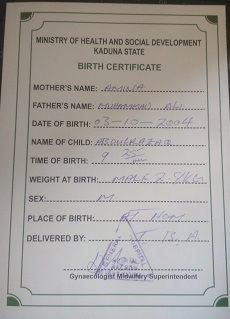 MINISTRY OF HEALTH AND SOCIAL DEVELOPMENT
KADUNA STATE
BIRTH CERTIFICATE
MOTHER'S NAME: AMINA
FATHER'S NAME: MUHAMMAD ALI
DATE OF BIRTH: 03-10-2004
NAME OF CHILD: ABDULRAZAQ
TIME OF BIRTH: 9 25
WEIGHT AT BIRTH: MALE 2.8KG
SEX: M
PLACE OF BIRTH: AT HOM
DELIVERED BY: T. B. A
Gynaecologist Midwifery Superintendent